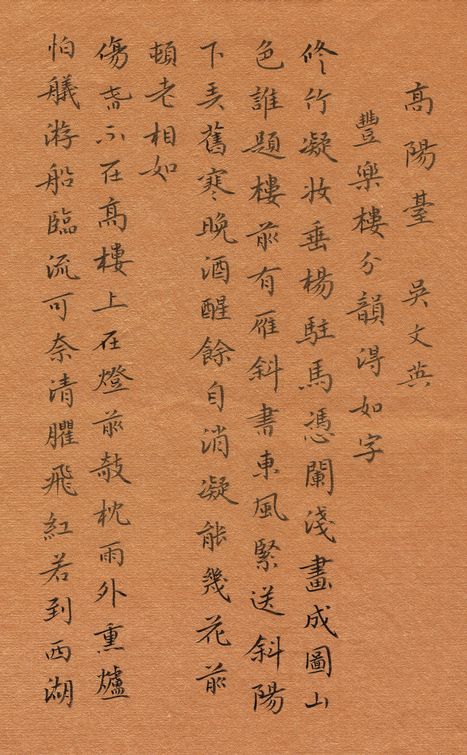 高陽臺 吳文英
豐樂樓分韻得如字
修竹凝妝垂楊駐馬憑闌淺畫成圖山
色誰題樓前有雁斜書東風緊送斜陽
下弄舊寒晚酒醒餘自消凝能幾花前
頓老相如
傷春不在高樓上在燈前攲枕雨外熏爐
怕艤游船臨流可奈清臞飛紅若到西湖